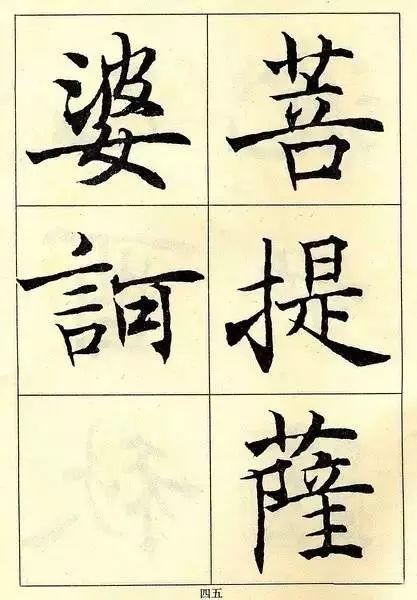 菩提薩
婆訶
四五